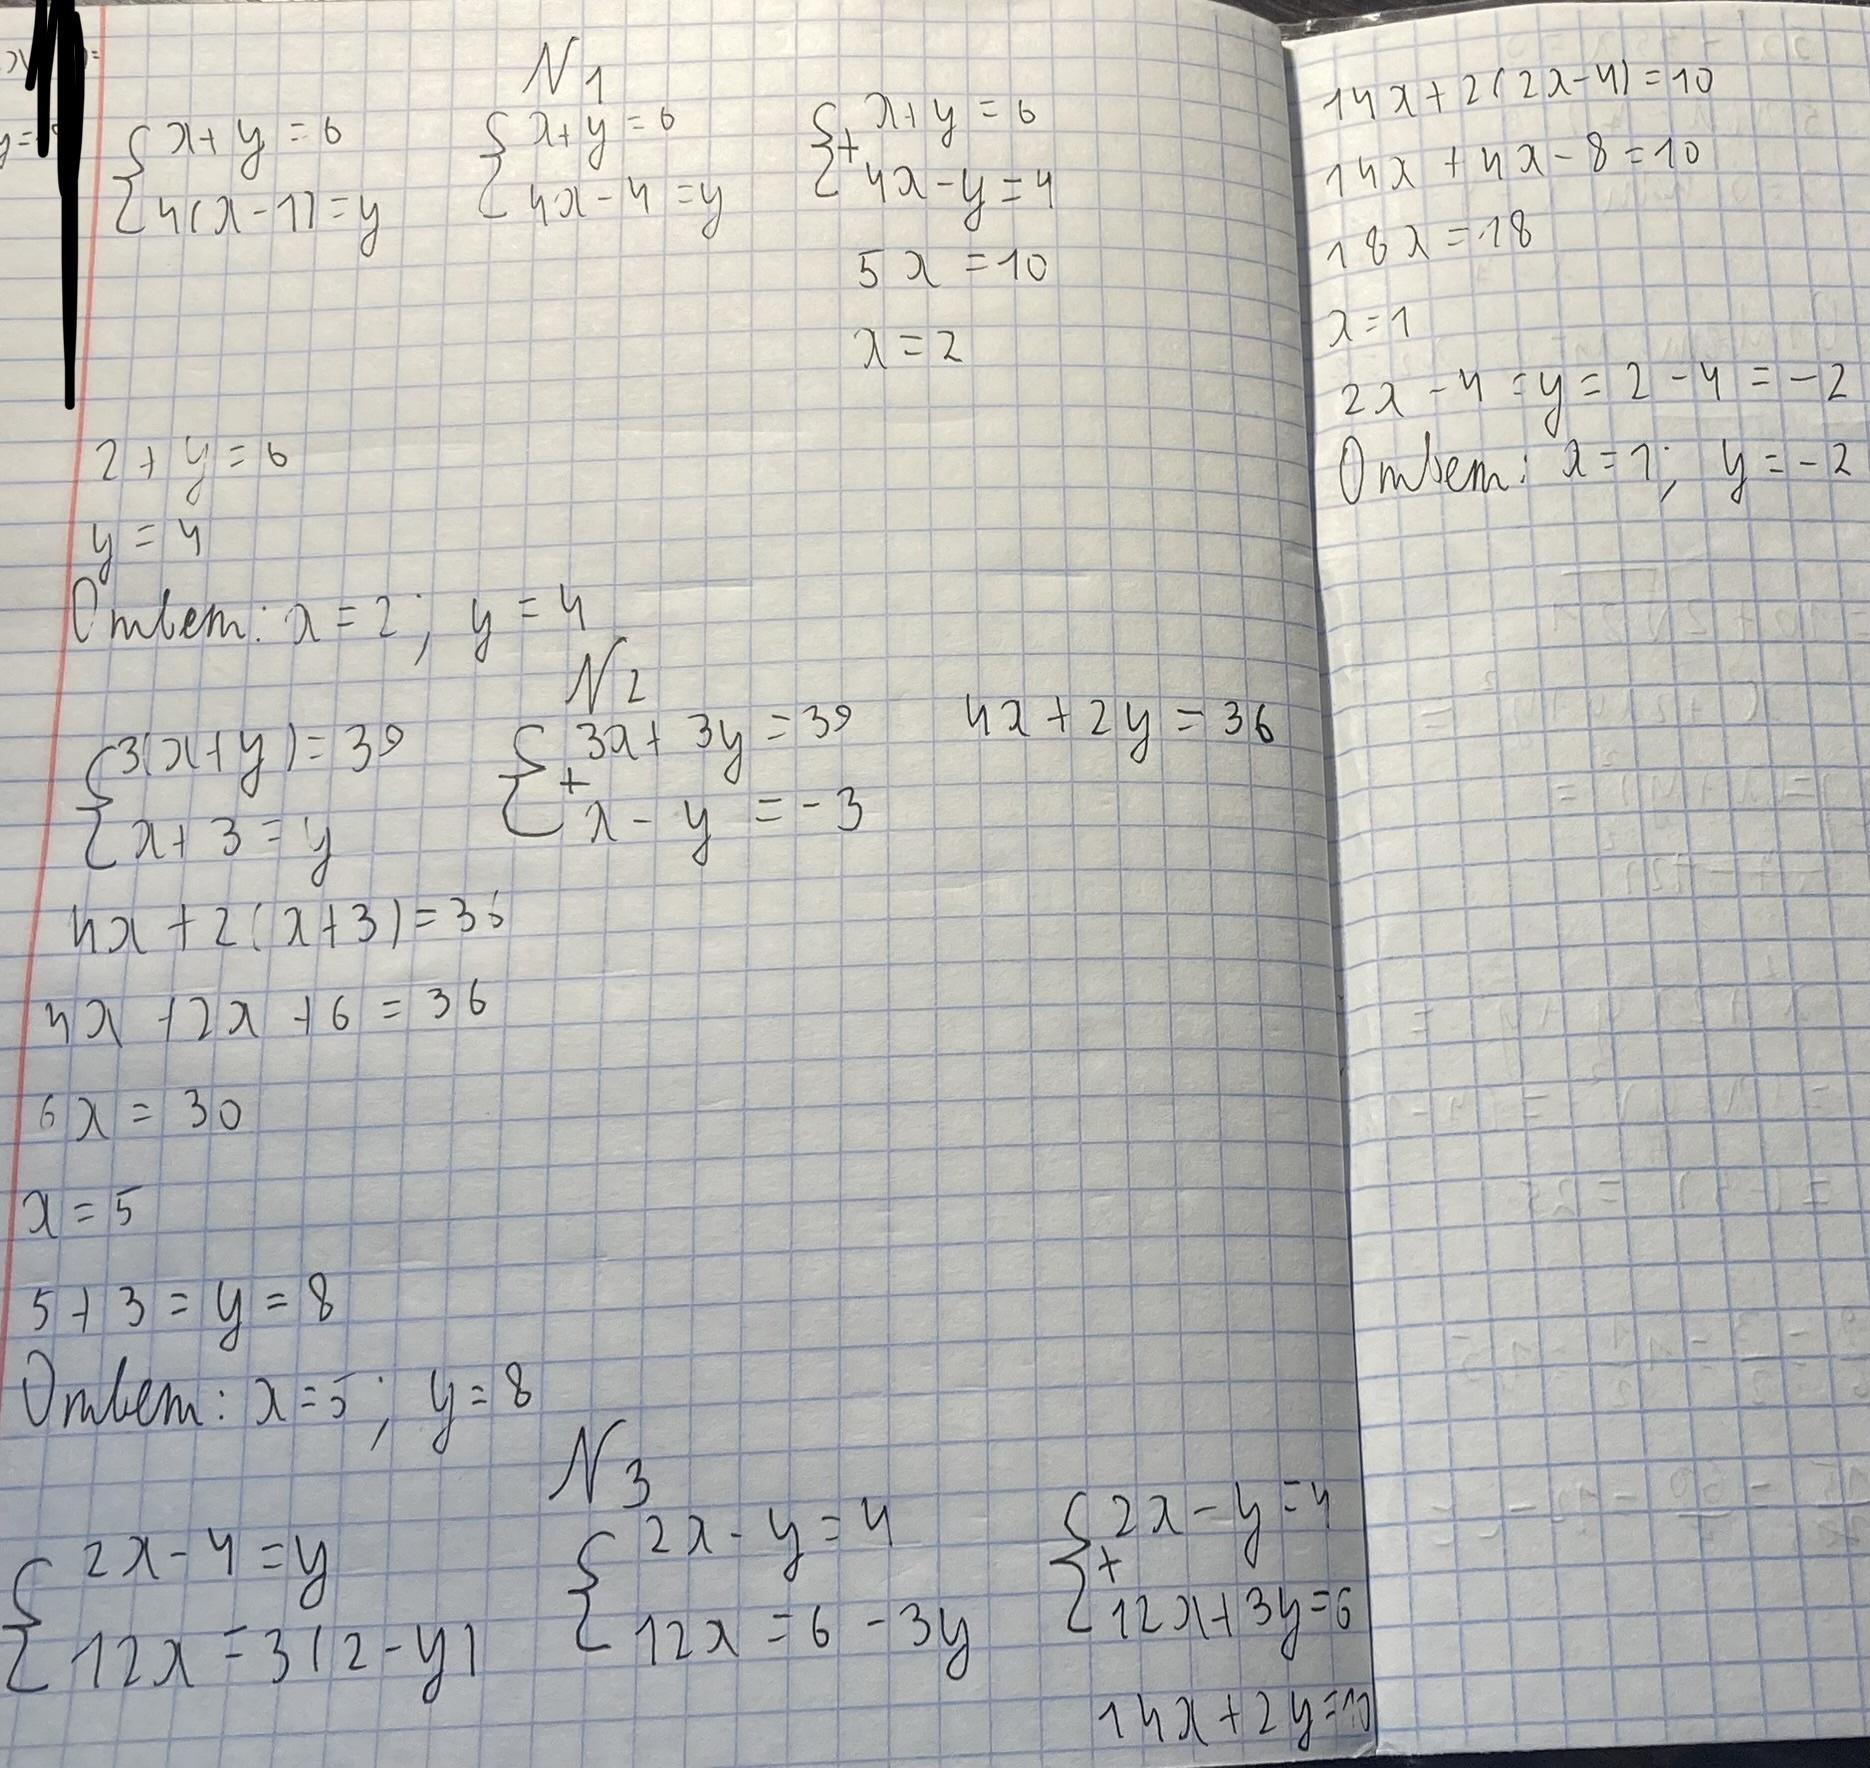 N1
{ x + y = 6
{ 4(x - 1) = y
{ x + y = 6
{ 4x - 4 = y
{ + x + y = 6
{ 4x - y = 4
5x = 10
x = 2
2 + y = 6
y = 4
Ответ: x = 2; y = 4
N2
{ 3(x + y) = 39
{ x + 3 = y
{ + 3x + 3y = 39
{ x - y = -3
4x + 2y = 36
4x + 2(x + 3) = 36
4x + 2x + 6 = 36
6x = 30
x = 5
5 + 3 = y = 8
Ответ: x = 5; y = 8
N3
{ 2x - 4 = y
{ 12x = 3(2 - y)
{ 2x - y = 4
{ 12x = 6 - 3y
{ + 2x - y = 4
{ 12x + 3y = 6
14x + 2y = 10
14x + 2(2x - 4) = 10
14x + 4x - 8 = 10
18x = 18
x = 1
2x - 4 = y = 2 - 4 = -2
Ответ: x = 1; y = -2